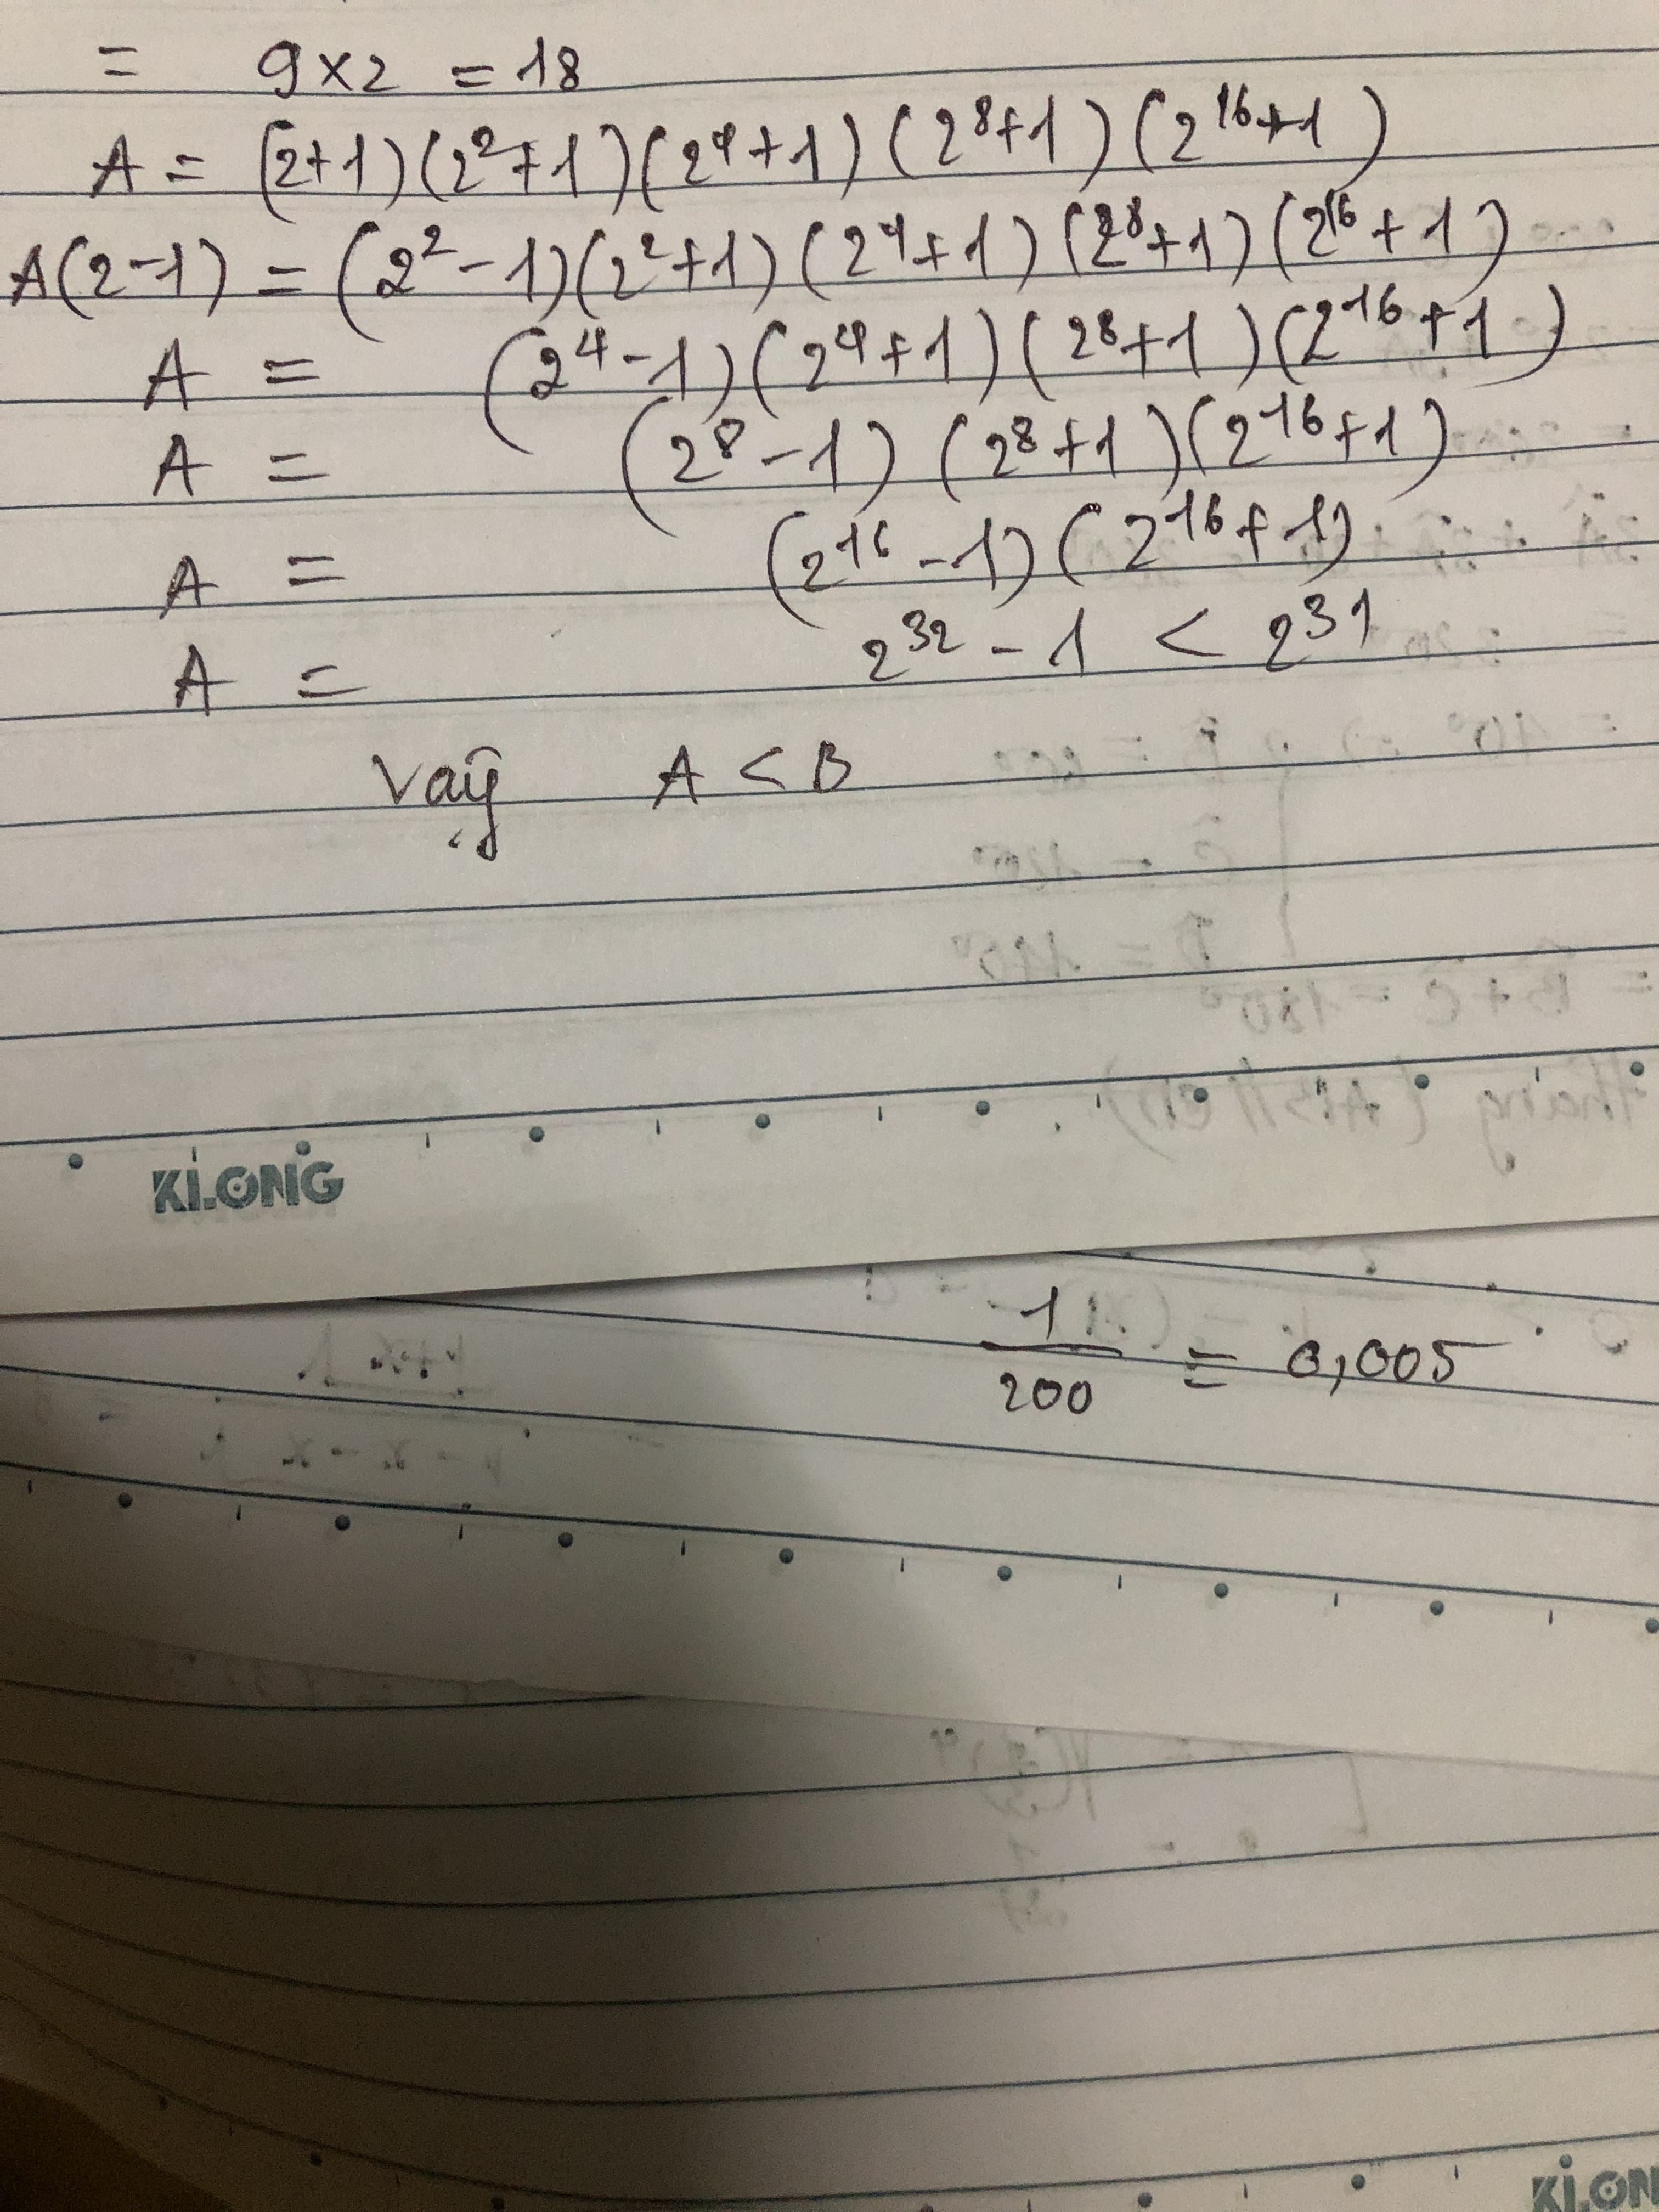 = 9×2 = 18
A = (2+1)(2²+1)(2⁴+1)(2⁸+1)(2¹⁶+1)
A(2-1) = (2²-1)(2²+1)(2⁴+1)(2⁸+1)(2¹⁶+1)
A = (2⁴-1)(2⁴+1)(2⁸+1)(2¹⁶+1)
A = (2⁸-1)(2⁸+1)(2¹⁶+1)
A = (2¹⁶-1)(2¹⁶+1)
A = 2³² - 1 < 2³¹
Vậy A < B
KLONG
1/200 = 0,005
KLON